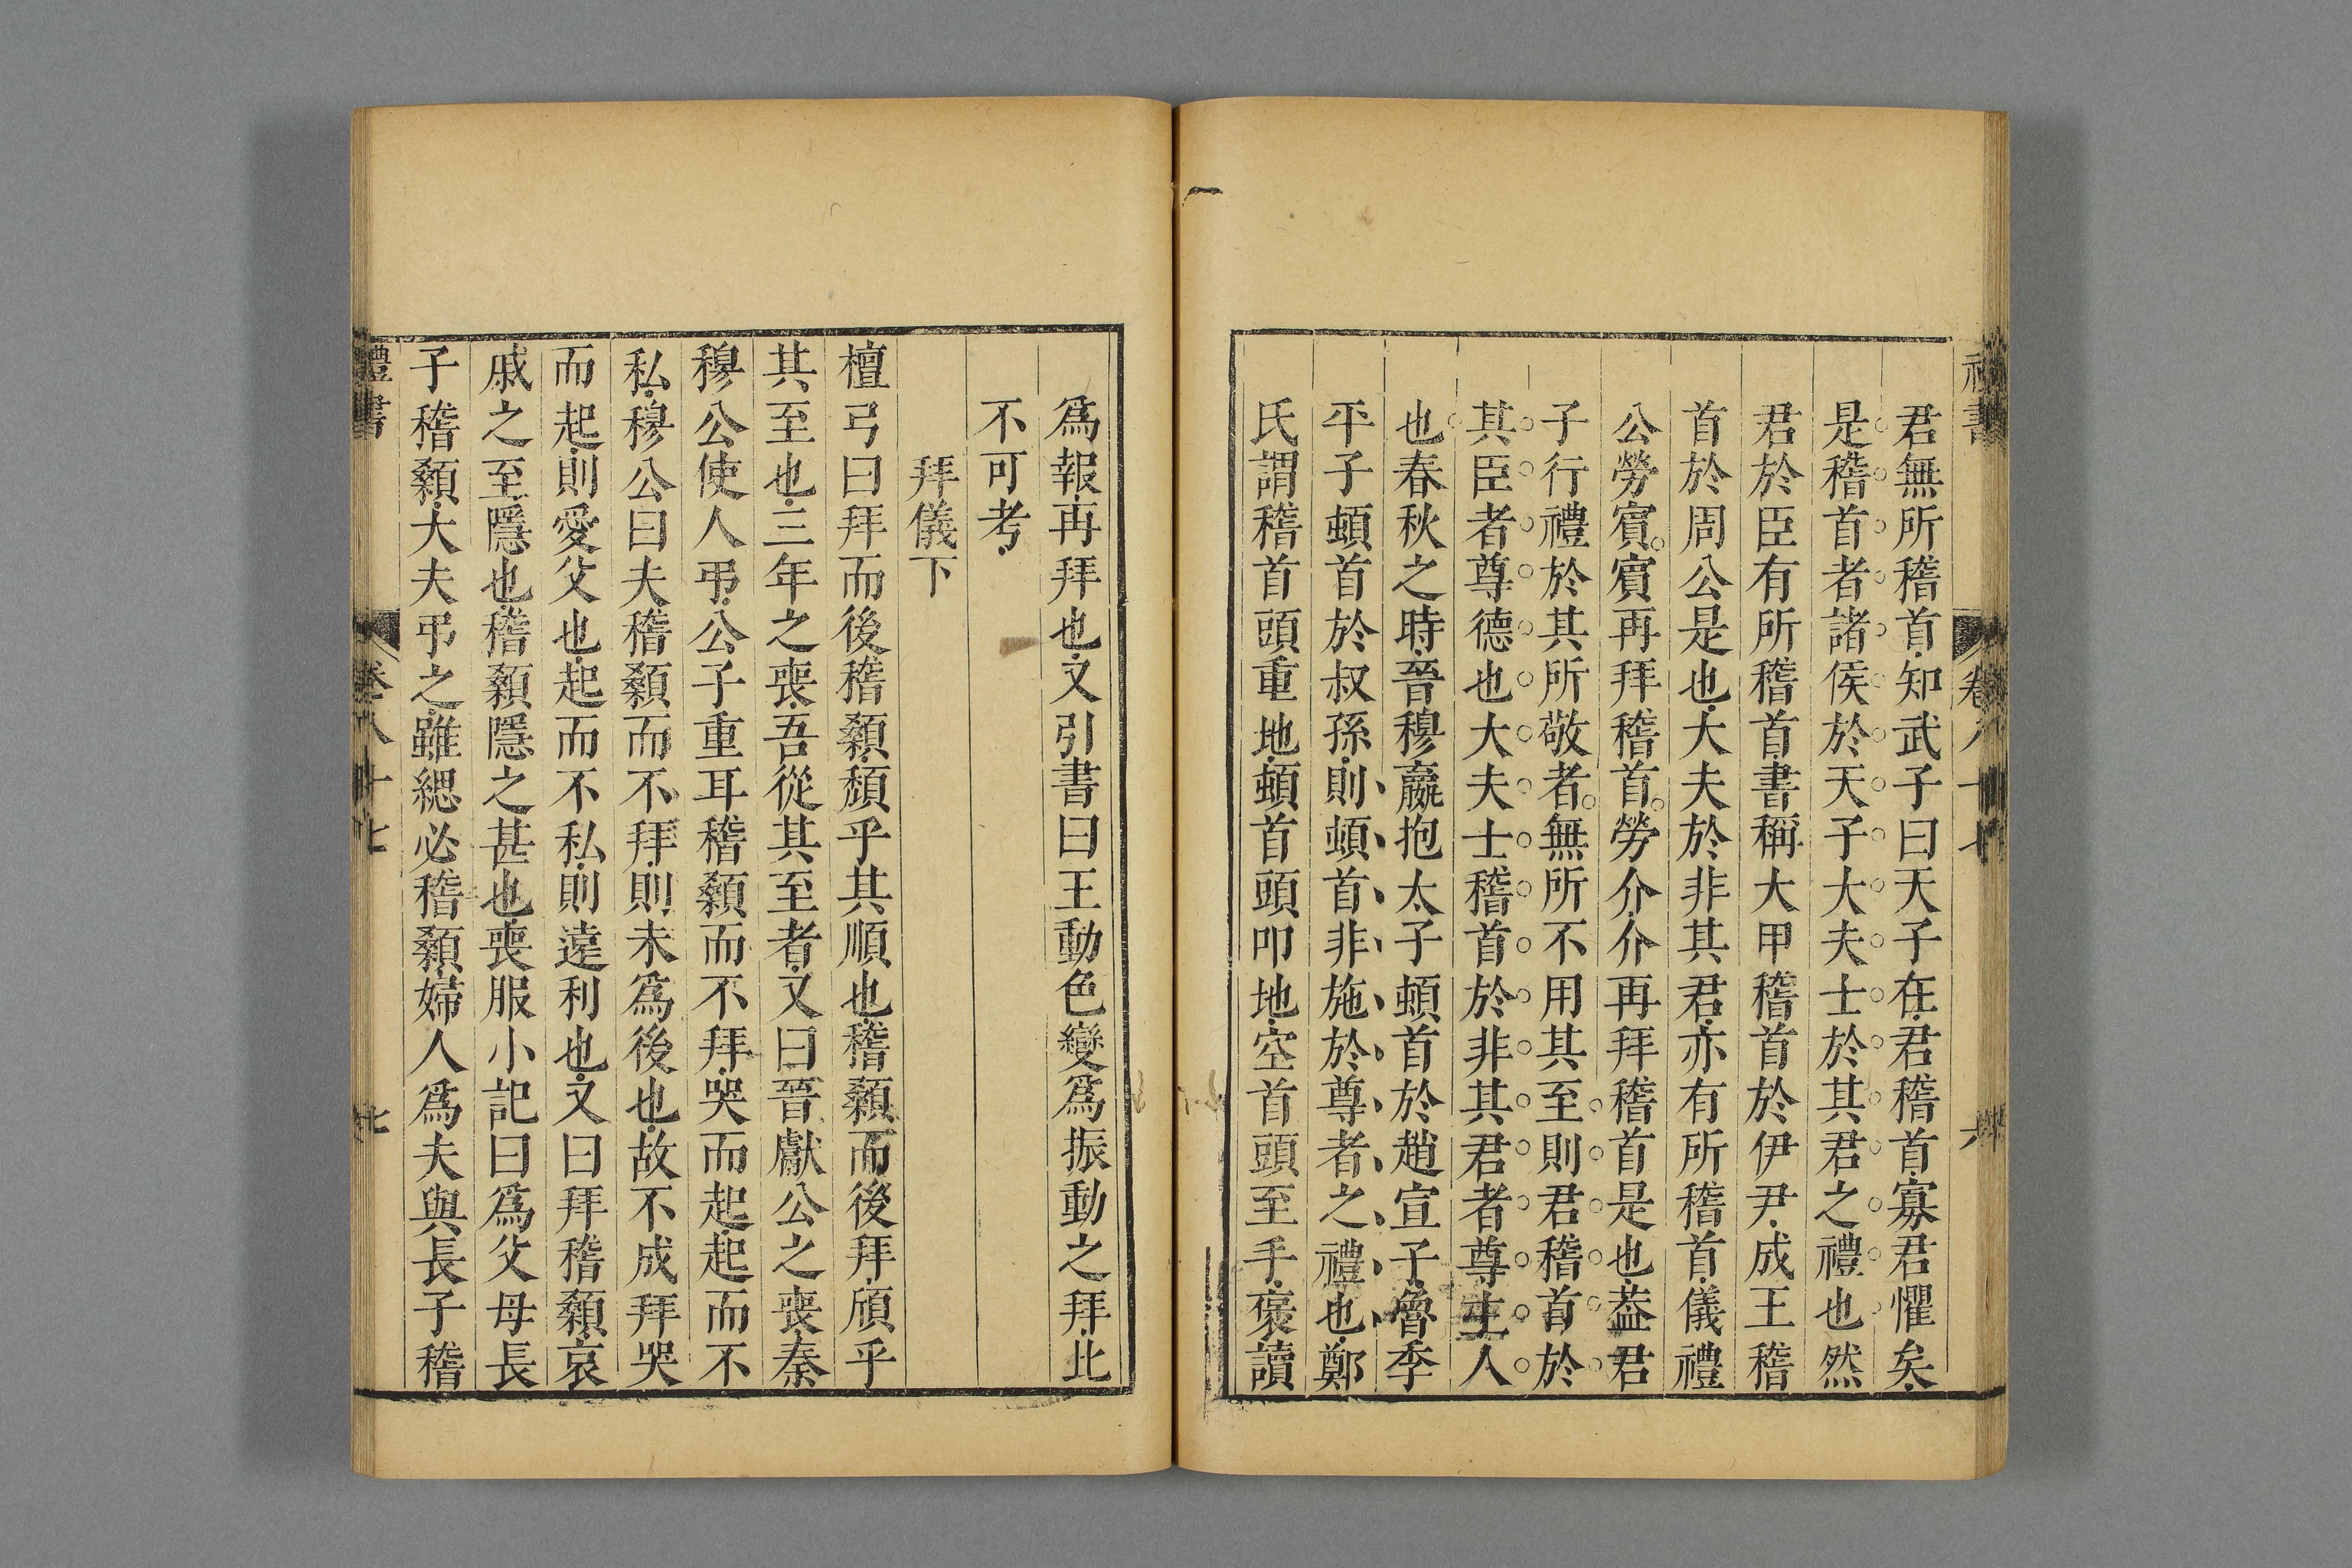 君無所稽首知武子曰天子在君稽首寡君懼矣
是稽首者諸侯於天子大夫士於其君之禮也然
君於臣有所稽首書稱大甲稽首於伊尹成王稽
首於周公是也大夫於非其君亦有所稽首儀禮
公勞賓賓再拜稽首勞介介再拜稽首是也葢君
子行禮於其所敬者無所不用其至則君稽首於
其臣者尊德也大夫士稽首於非其君者尊主人
也春秋之時晉穆嬴抱太子頓首於趙宣子魯季
平子頓首於叔孫則頓首非施於尊者之禮也鄭
氏謂稽首頭重地頓首頭叩地空首頭至手褒讀
爲報再拜也又引書曰王動色變爲振動之拜此
不可考
拜儀下
檀弓曰拜而後稽顙頹乎其順也稽顙而後拜頎乎
其至也三年之喪吾從其至者又曰晉獻公之喪秦
穆公使人弔公子重耳稽顙而不拜哭而起起而不
私穆公曰夫稽顙而不拜則未爲後也故不成拜哭
而起則愛父也起而不私則遠利也又曰拜稽顙哀
戚之至隱也稽顙隱之甚也喪服小記曰爲父母長
子稽顙大夫弔之雖緦必稽顙婦人爲夫與長子稽
禮書 卷八十七 七